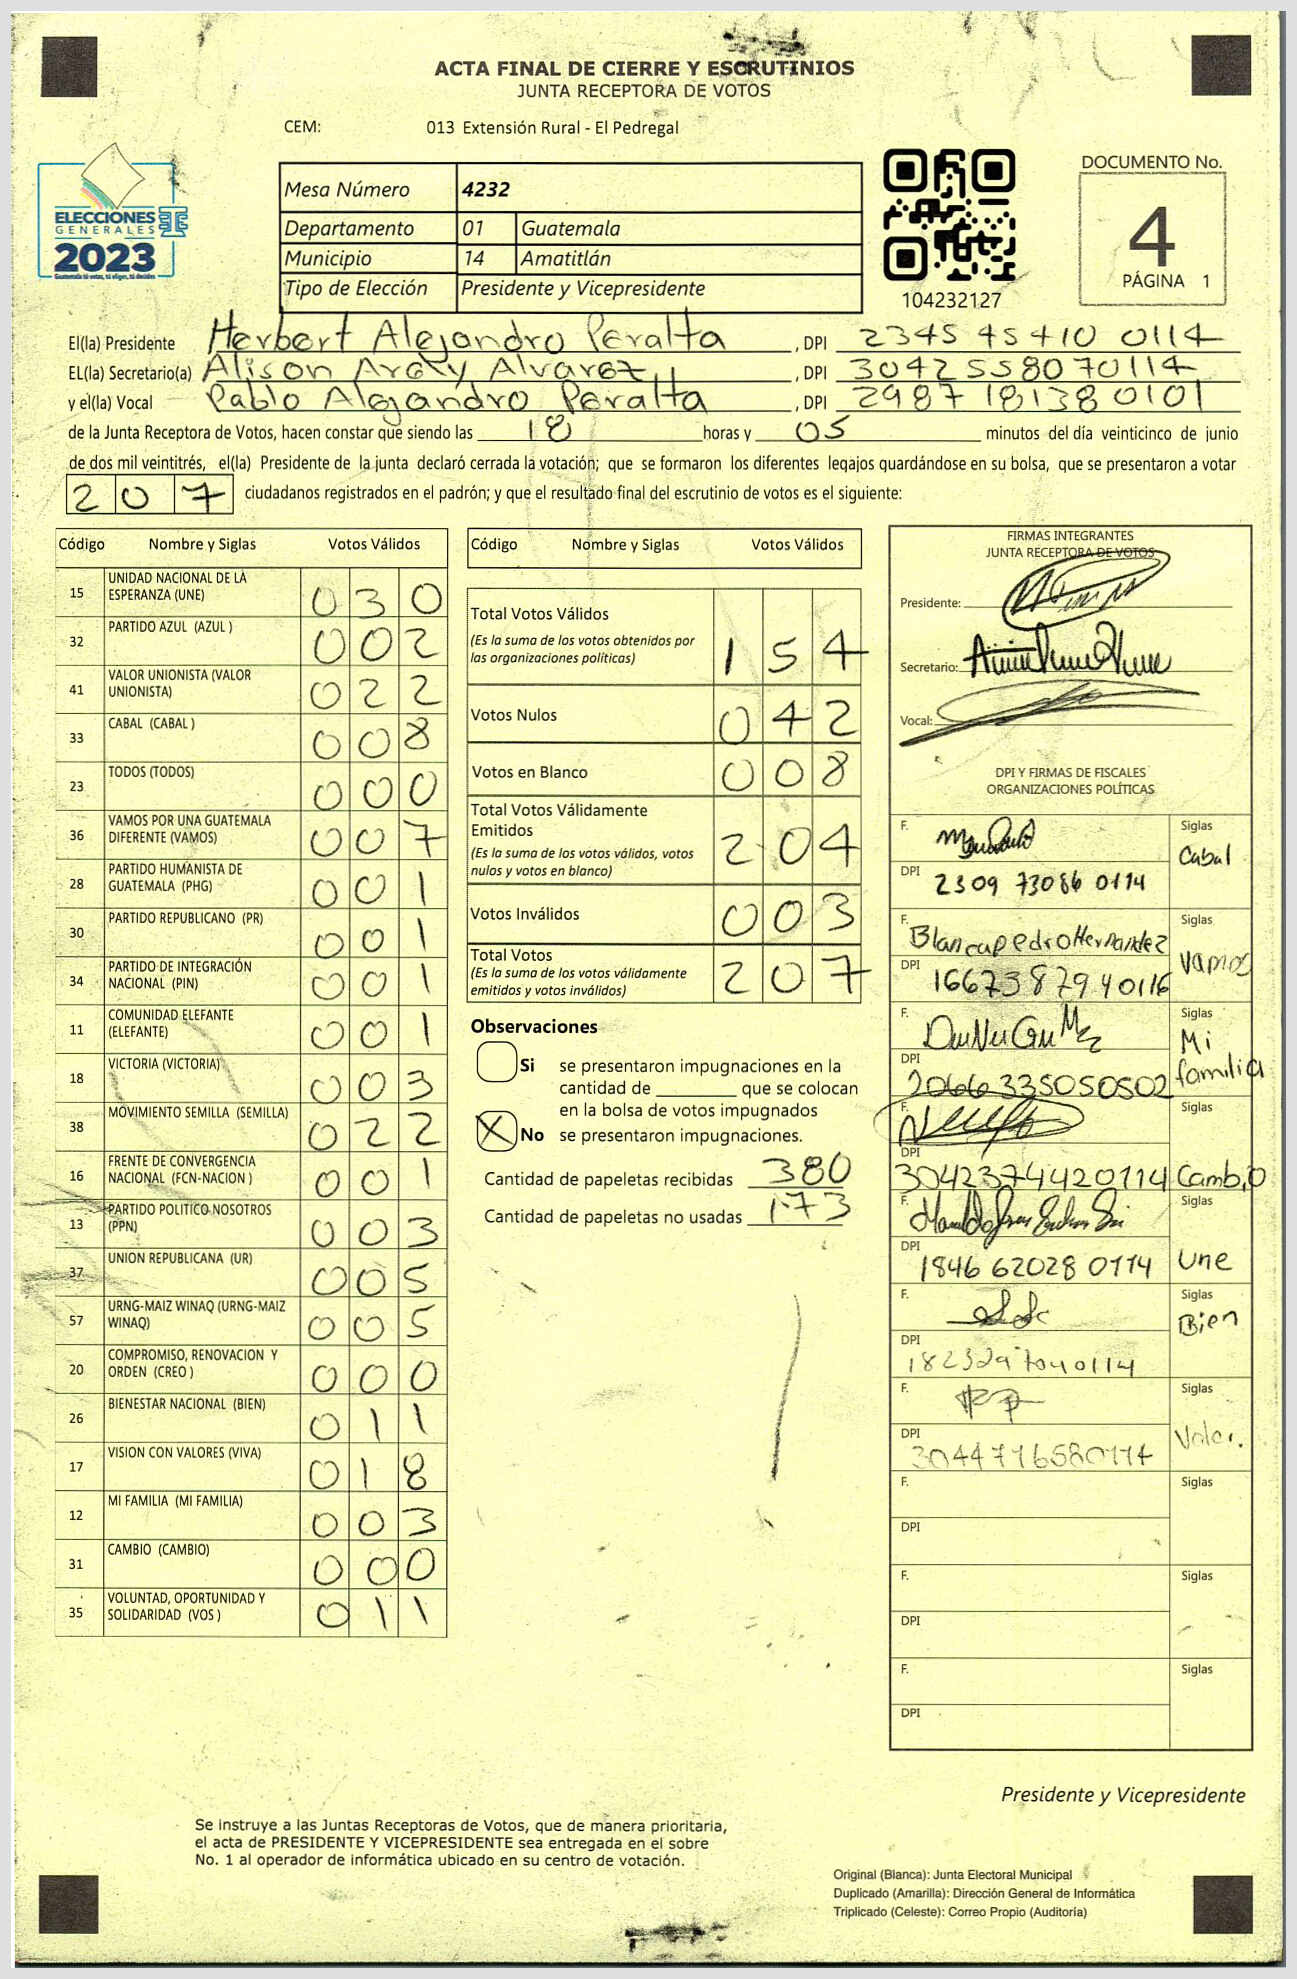 ACTA FINAL DE CIERRE Y ESCRUTINIOS
JUNTA RECEPTORA DE VOTOS
CEM: 013 Extensión Rural - El Pedregal
ELECCIONES
GENERALES
2023
Guatemala tú votas, tú eliges, tú decides
Mesa Número 4232
Departamento 01 Guatemala
Municipio 14 Amatitlán
Tipo de Elección Presidente y Vicepresidente
104232127
DOCUMENTO No.
4
PÁGINA 1
El(la) Presidente Herbert Alejandro Peralta, DPI 2345 45410 0114
EL(la) Secretario(a) Alison Arely Alvarez, DPI 3042558070114
y el(la) Vocal Pablo Alejandro Peralta, DPI 2987 18138 0101
de la Junta Receptora de Votos, hacen constar que siendo las 18 horas y 05 minutos del día veinticinco de junio
de dos mil veintitrés, el(la) Presidente de la junta declaró cerrada la votación; que se formaron los diferentes legajos quardándose en su bolsa, que se presentaron a votar
207 ciudadanos registrados en el padrón; y que el resultado final del escrutinio de votos es el siguiente:
Código Nombre y Siglas Votos Válidos
15 UNIDAD NACIONAL DE LA ESPERANZA (UNE) 030
32 PARTIDO AZUL (AZUL ) 002
41 VALOR UNIONISTA (VALOR UNIONISTA) 022
33 CABAL (CABAL ) 008
23 TODOS (TODOS) 000
36 VAMOS POR UNA GUATEMALA DIFERENTE (VAMOS) 007
28 PARTIDO HUMANISTA DE GUATEMALA (PHG) 001
30 PARTIDO REPUBLICANO (PR) 001
34 PARTIDO DE INTEGRACIÓN NACIONAL (PIN) 001
11 COMUNIDAD ELEFANTE (ELEFANTE) 001
18 VICTORIA (VICTORIA) 003
38 MOVIMIENTO SEMILLA (SEMILLA) 022
16 FRENTE DE CONVERGENCIA NACIONAL (FCN-NACION ) 001
13 PARTIDO POLITICO NOSOTROS (PPN) 003
37 UNION REPUBLICANA (UR) 005
57 URNG-MAIZ WINAQ (URNG-MAIZ WINAQ) 005
20 COMPROMISO, RENOVACION Y ORDEN (CREO ) 000
26 BIENESTAR NACIONAL (BIEN) 011
17 VISION CON VALORES (VIVA) 018
12 MI FAMILIA (MI FAMILIA) 003
31 CAMBIO (CAMBIO) 000
35 VOLUNTAD, OPORTUNIDAD Y SOLIDARIDAD (VOS ) 011
Código Nombre y Siglas Votos Válidos
Total Votos Válidos 154
(Es la suma de los votos obtenidos por
las organizaciones políticas)
Votos Nulos 042
Votos en Blanco 008
Total Votos Válidamente
Emitidos 204
(Es la suma de los votos válidos, votos
nulos y votos en blanco)
Votos Inválidos 003
Total Votos 207
(Es la suma de los votos válidamente
emitidos y votos inválidos)
Observaciones
Si se presentaron impugnaciones en la
cantidad de ________ que se colocan
en la bolsa de votos impugnados
X No se presentaron impugnaciones.
Cantidad de papeletas recibidas 380
Cantidad de papeletas no usadas 173
FIRMAS INTEGRANTES
JUNTA RECEPTORA DE VOTOS
Presidente:
Secretario:
Vocal:
DPI Y FIRMAS DE FISCALES
ORGANIZACIONES POLÍTICAS
F. Siglas
Cabal
DPI 2309 73086 0114
F. Blanca pedro Hernandez Siglas
Vamos
DPI 1667387940116
F. Siglas
Mi
familia
DPI 2066335050502
F. Siglas
DPI 3042374420114 Cambio
F. Siglas
DPI 1846 62028 0114 Une
F. Siglas
Bien
DPI
F. Siglas
Valor.
DPI 3044716580114
F. Siglas
DPI
F. Siglas
DPI
F. Siglas
DPI
Presidente y Vicepresidente
Se instruye a las Juntas Receptoras de Votos, que de manera prioritaria,
el acta de PRESIDENTE Y VICEPRESIDENTE sea entregada en el sobre
No. 1 al operador de informática ubicado en su centro de votación.
Original (Blanca): Junta Electoral Municipal
Duplicado (Amarilla): Dirección General de Informática
Triplicado (Celeste): Correo Propio (Auditoría)